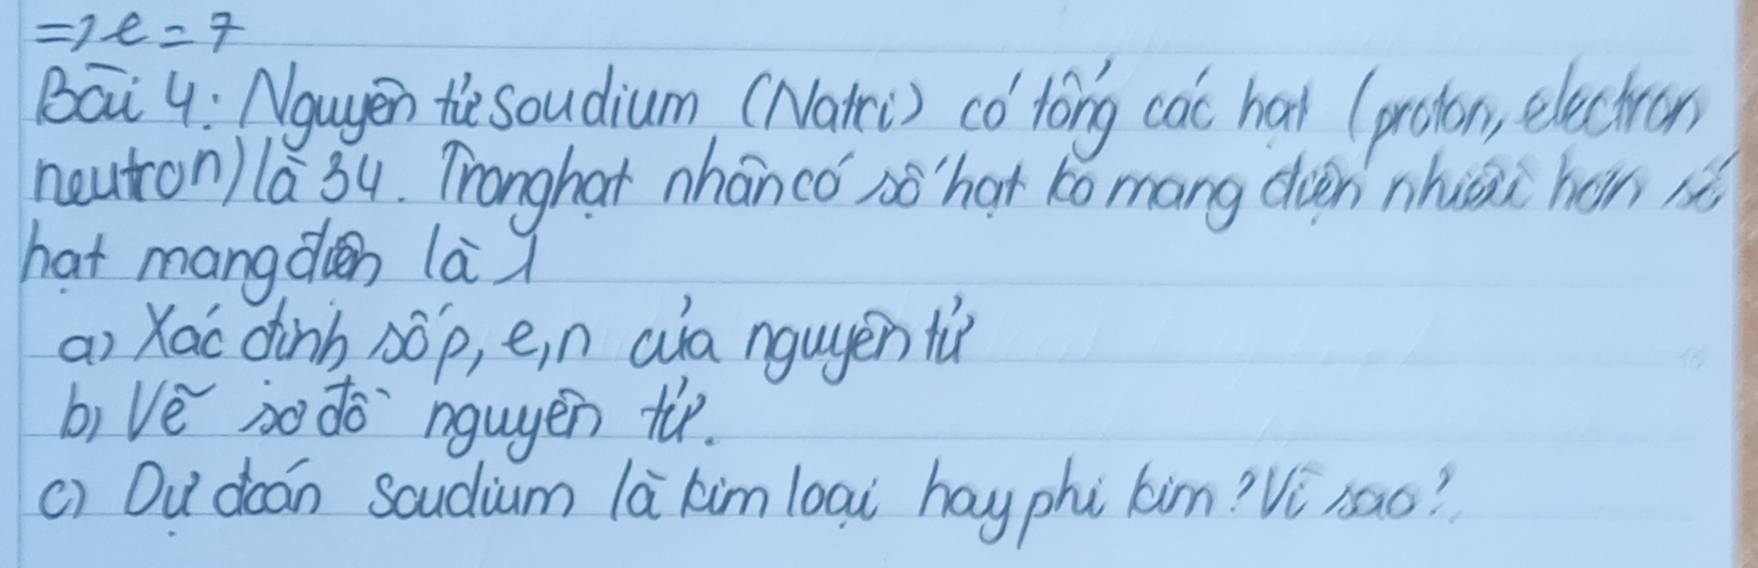 => e = 7
Bài 4: Nguyên tử soudium (Natri) có tổng các hạt (proton, electron
neutron) là 34. Trong hạt nhân có số hạt ko mang điện nhiều hơn số
hạt mang điện là 1
a) Xác định số p, e, n của nguyên tử
b) Vẽ sơ đồ nguyên tử.
c) Dự đoán soudium là kim loại hay phi kim? Vì sao?